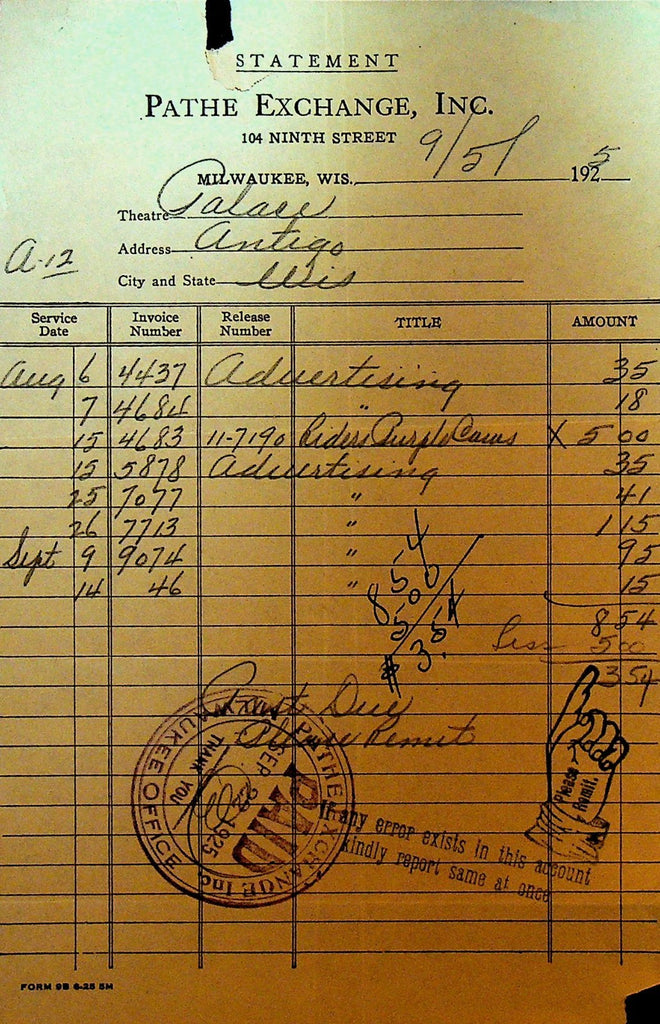 STATEMENT
PATHE EXCHANGE, INC.
104 NINTH STREET
MILWAUKEE, WIS. 9/5/ 1925
Theatre Palace
Address Antigo
A-12
City and State Wis
Service Date Invoice Number Release Number TITLE AMOUNT
Aug 6 4437 Advertising 35
7 4684 " 18
15 4683 11-7190 Riders Purple Cows X 5 00
15 5878 Advertising 35
25 7077 " 41
26 7713 " 1 15
Sept 9 9074 " 95
14 46 " 15
8.54
5.00
$3.54
8 54
Less 5 00
3 54
Past Due
Please Remit
Please Remit.
PATHE EXCHANGE Inc.
MILWAUKEE OFFICE
PAID
SEP 22 1925
THANK YOU
If any error exists in this account
kindly report same at once
FORM 9B 6-25 5M